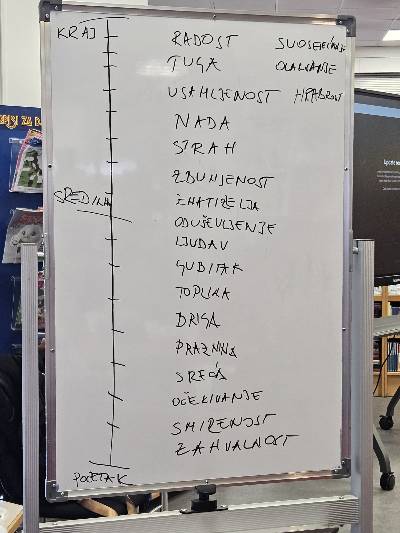 KRAJ
RADOST SUOSJEĆANJE
TUGA OLAKŠANJE
USAMLJENOST HRABROST
NADA
STRAH
ZBUNJENOST
SREDINA ZNATIŽELJA
ODUŠEVLJENJE
LJUBAV
GUBITAK
TOPLINA
BRIGA
PRAZNINA
SREĆA
OČEKIVANJE
SMIRENOST
ZAHVALNOST
POČETAK